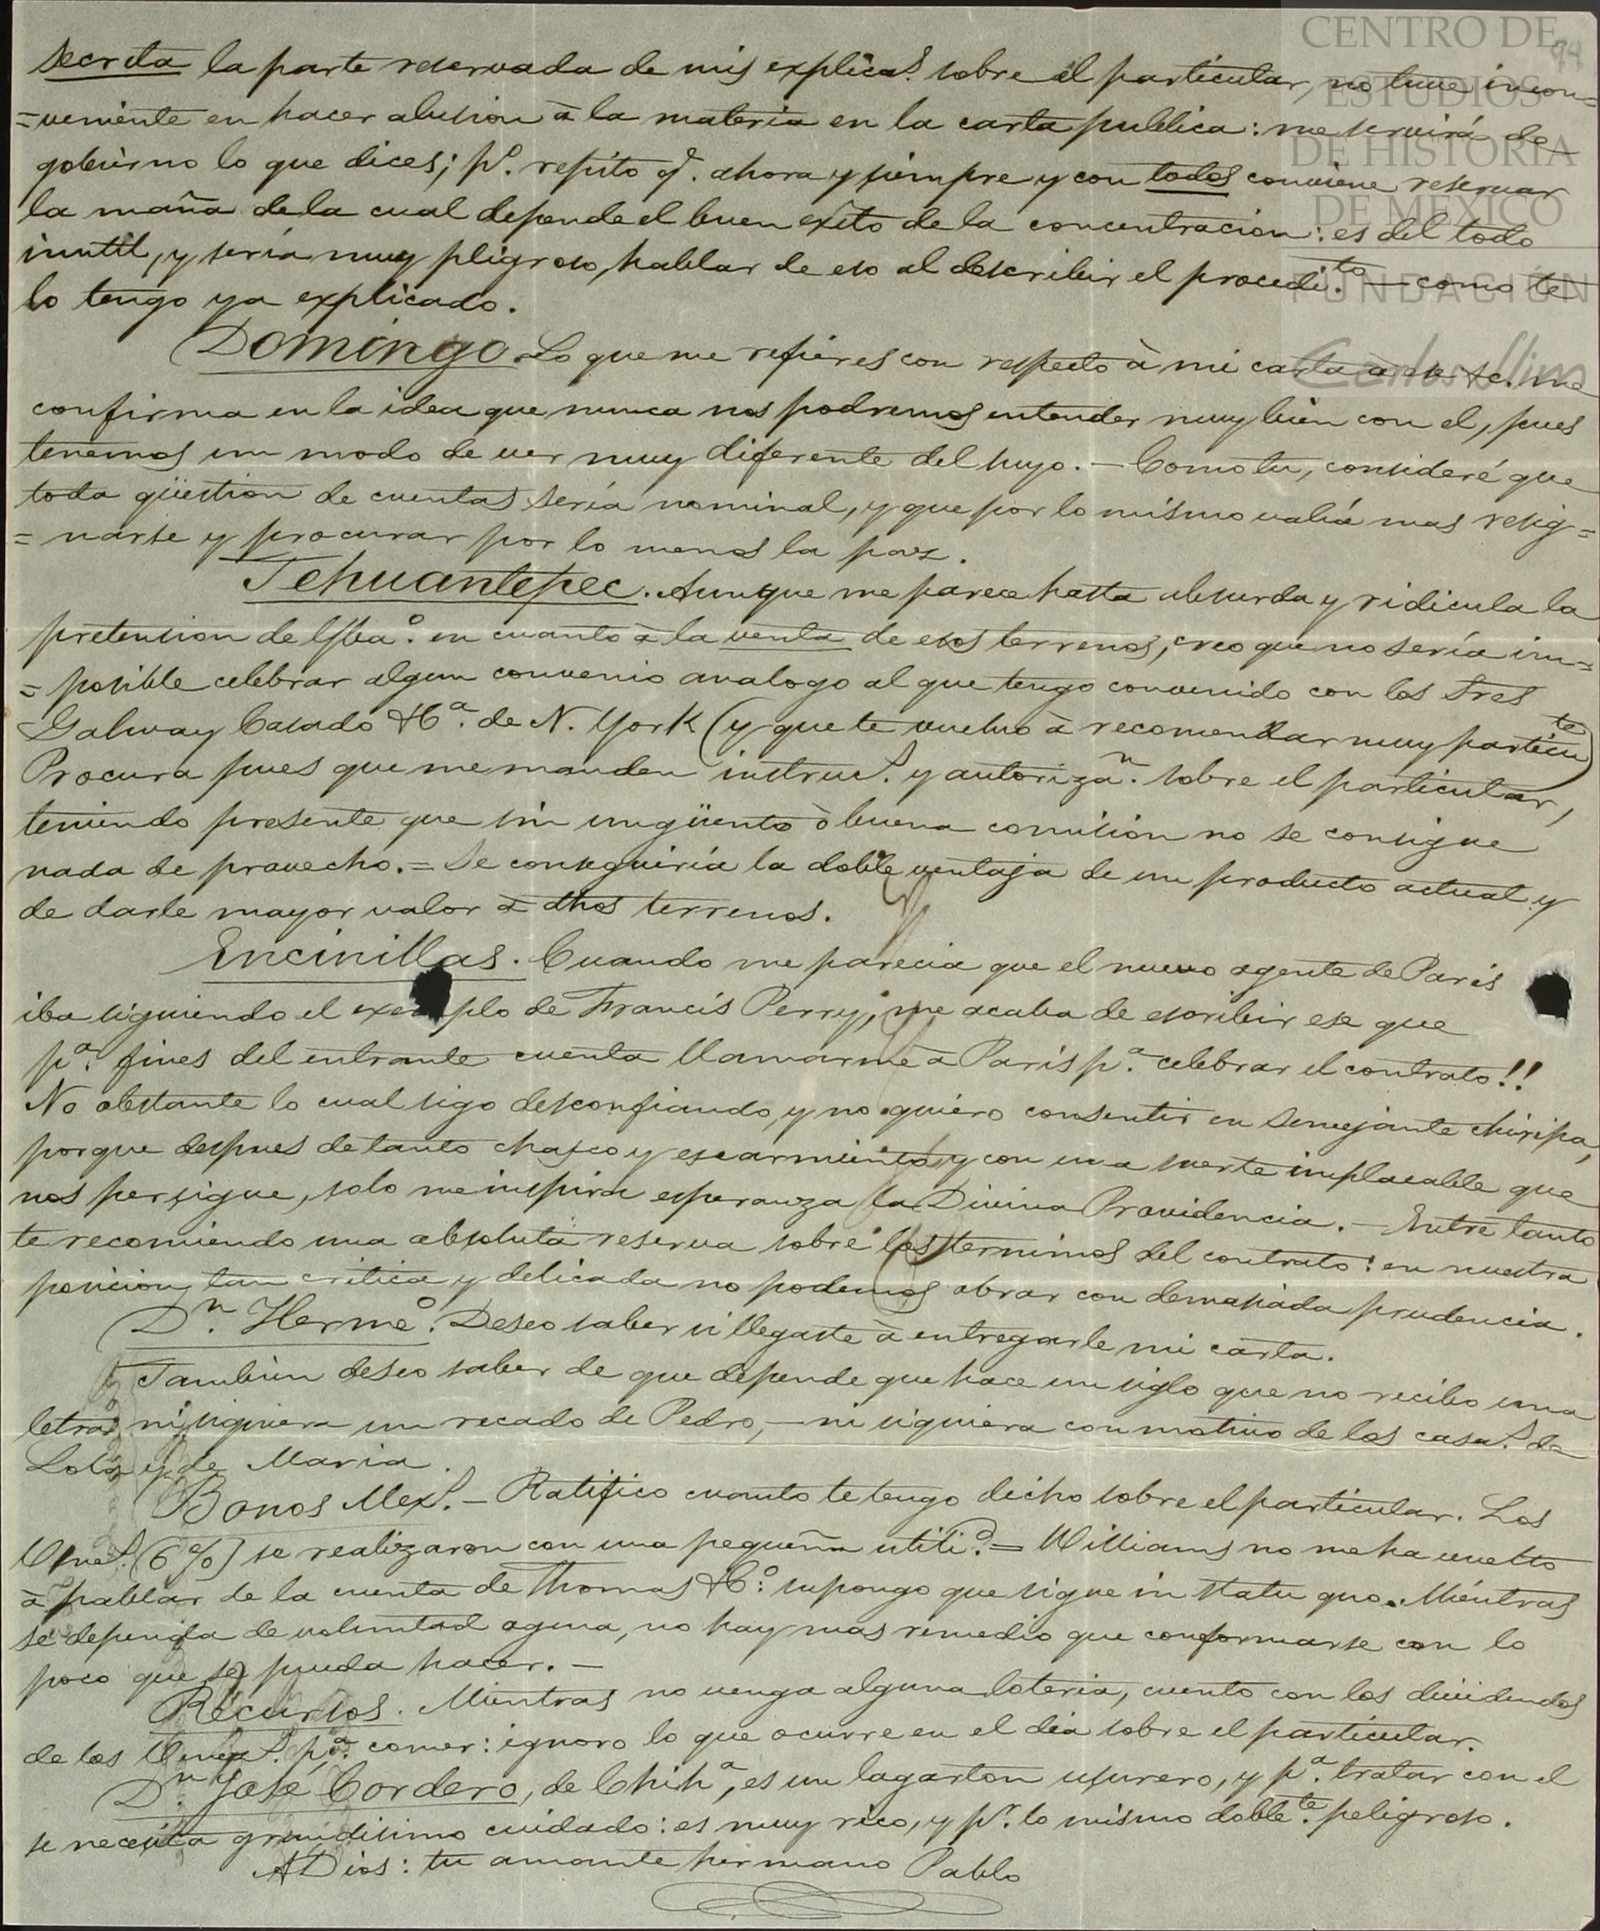 CENTRO DE
ESTUDIOS
DE HISTORIA
DE MÉXICO
FUNDACIÓN
Carlos Slim
94
secreta la parte reservada de mis explica.s sobre el particular, no tuve incon=
=veniente en hacer alusion à la materia en la carta publica: me servirá de
gobierno lo que dices; p.o repito q.e ahora y siempre y con todos conviene reservar
la maña de la cual depende el buen exito de la concentracion: es del todo
inutil, y sería muy pligroso, hablar de eso al describir el procedi.to — como te
lo tengo ya explicado.
Domingo. Lo que me refieres con respecto à mi carta à me
confirma en la idea que nunca nos podremos entender muy bien con el, pues
tenemos un modo de ver muy diferente del suyo. — Como tu, consideré que
toda qüestion de cuentas sería nominal, y que por lo mismo valiá mas resig=
=narse y procurar por lo menos la paz.
Tehuantepec. Aunque me parece hasta absurda y ridicula la
pretension de en cuanto à la venta de esos terrenos, creo que no sería im=
=posible celebrar algun convenio analogo al que tengo convenido con los Sres
Galway Casado & C.a de N. York (y que te vuelvo à recomendar muy particu.te)
Procura pues que me manden instruc.s y autoriza.n sobre el particular,
teniendo presente que sin ungüento ò buena comision no se consigue
nada de provecho. = Se conseguiría la doble ventaja de un producto actual y
de darle mayor valor à dhos terrenos.
Encinillas. Cuando me parecia que el nuevo agente de Paris
iba siguiendo el exemplo de Francis Perry, me acaba de escribir ese que
p.a fines del entrante cuenta llamarme à Paris p.a celebrar el contrato!!
No obstante lo cual sigo desconfiando, y no quiero consentir en semejante chiripa,
porque despues de tanto chasco y escarmiento, y con una suerte implacable que
nos persigue, solo me inspira esperanza la Divina Providencia. — Entre tanto
te recomiendo una absoluta reserva sobre los terminos del contrato: en nuestra
posicion tan critica y delicada no podemos obrar con demasiada prudencia.
D.n Herme.o Deseo saber si llegaste à entregarle mi carta.
Tambien deseo saber de que depende que hace un siglo que no recibo una
letra, ni siquiera un recado de Pedro, — ni siquiera con motivo de los casa.s de
Lola y de Maria.
Bonos Mex.s — Ratifico cuanto te tengo dicho sobre el particular. Los
(6%) se realizaron con una pequeña utili.d = Williams no me ha vuelto
à hablar de la cuenta de Thomas & C.o: supongo que sigue in statu quo. Miéntras
se dependa de voluntad agena, no hay mas remedio que conformarse con lo
poco que se pueda hacer. —
Recursos. Mientras no venga alguna loteria, cuento con los dividendos
de los p.a comer: ignoro lo que ocurre en el dia sobre el particular.
D.n José Cordero, de Chih.a, es un lagarton usurero, y p.a tratar con el
se necesita grandisimo cuidado: es muy rico, y p.r lo mismo doble.te peligroso.
A Dios: tu amante hermano Pablo